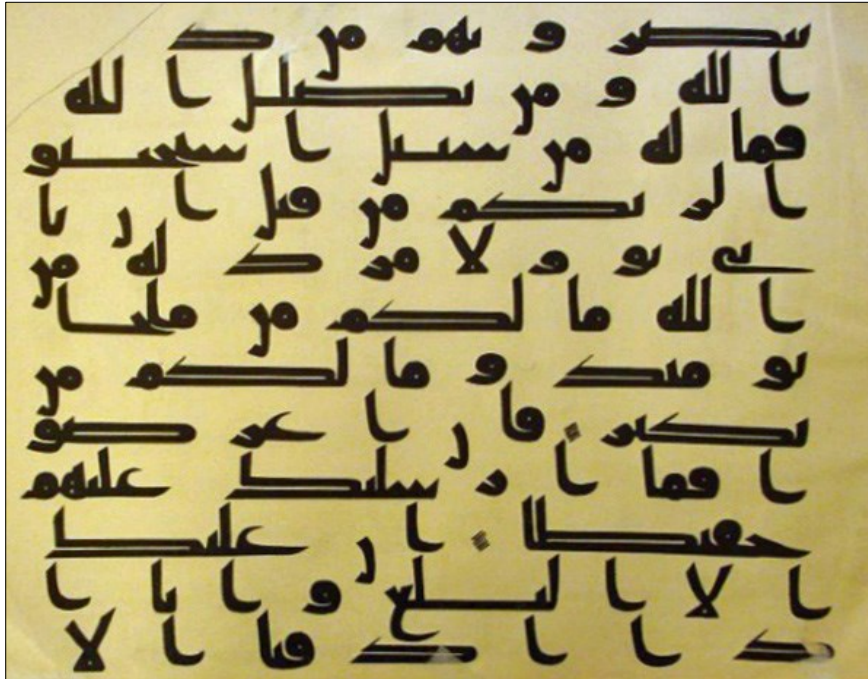 ينصر و نهم من د
ا لله و من يضلل ا لله
فما له من سبيل ا ستجيبو
ا لر بكم من قبل ا ن يا
تي يو م لا مر د له من
ا لله ما لكم من ملجا
يو مئذ و ما لكم من
نكير فا ن ا عر ضو
ا فما ا ر سلنك عليهم
حفيظا ا ن عليك
ا لا ا لبلغ و ا نا ا
ذ ا ا ذ قنا ا لا